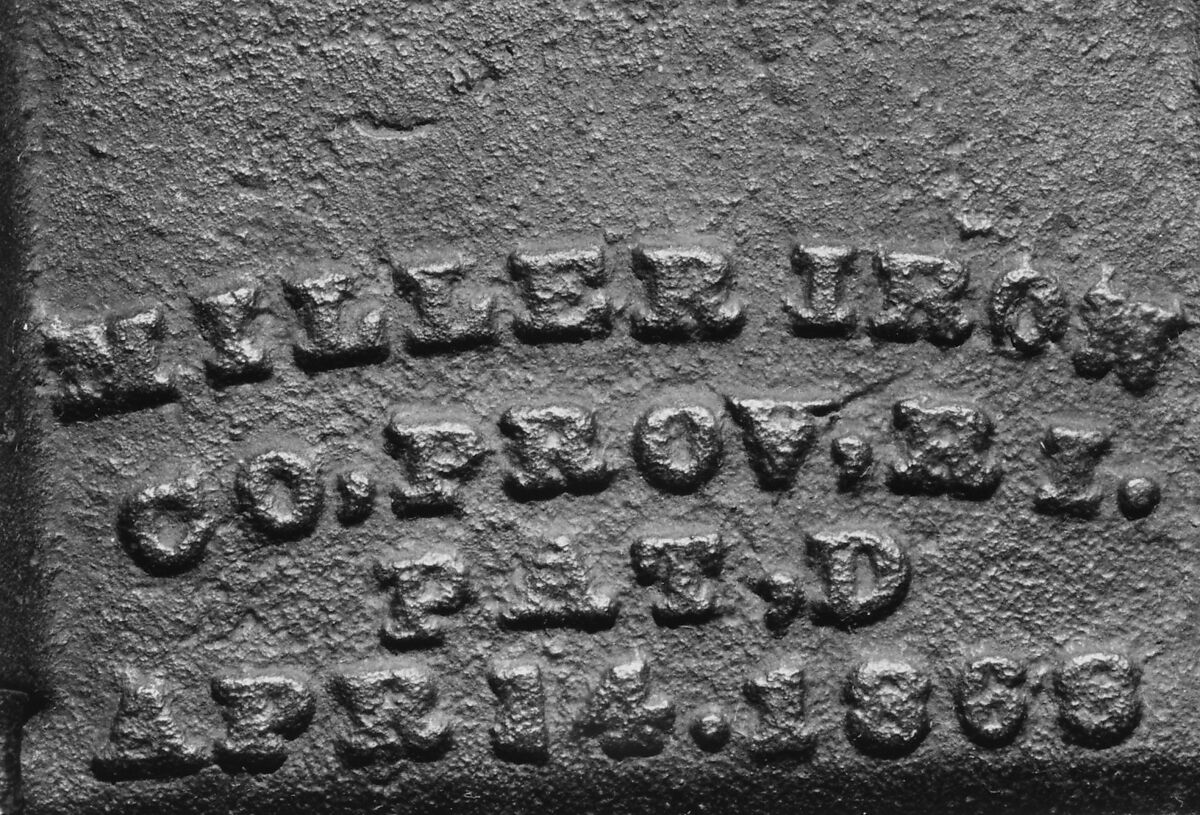 MILLER IRON
CO. PROV. R I.
PAT,D
APR 14. 1868